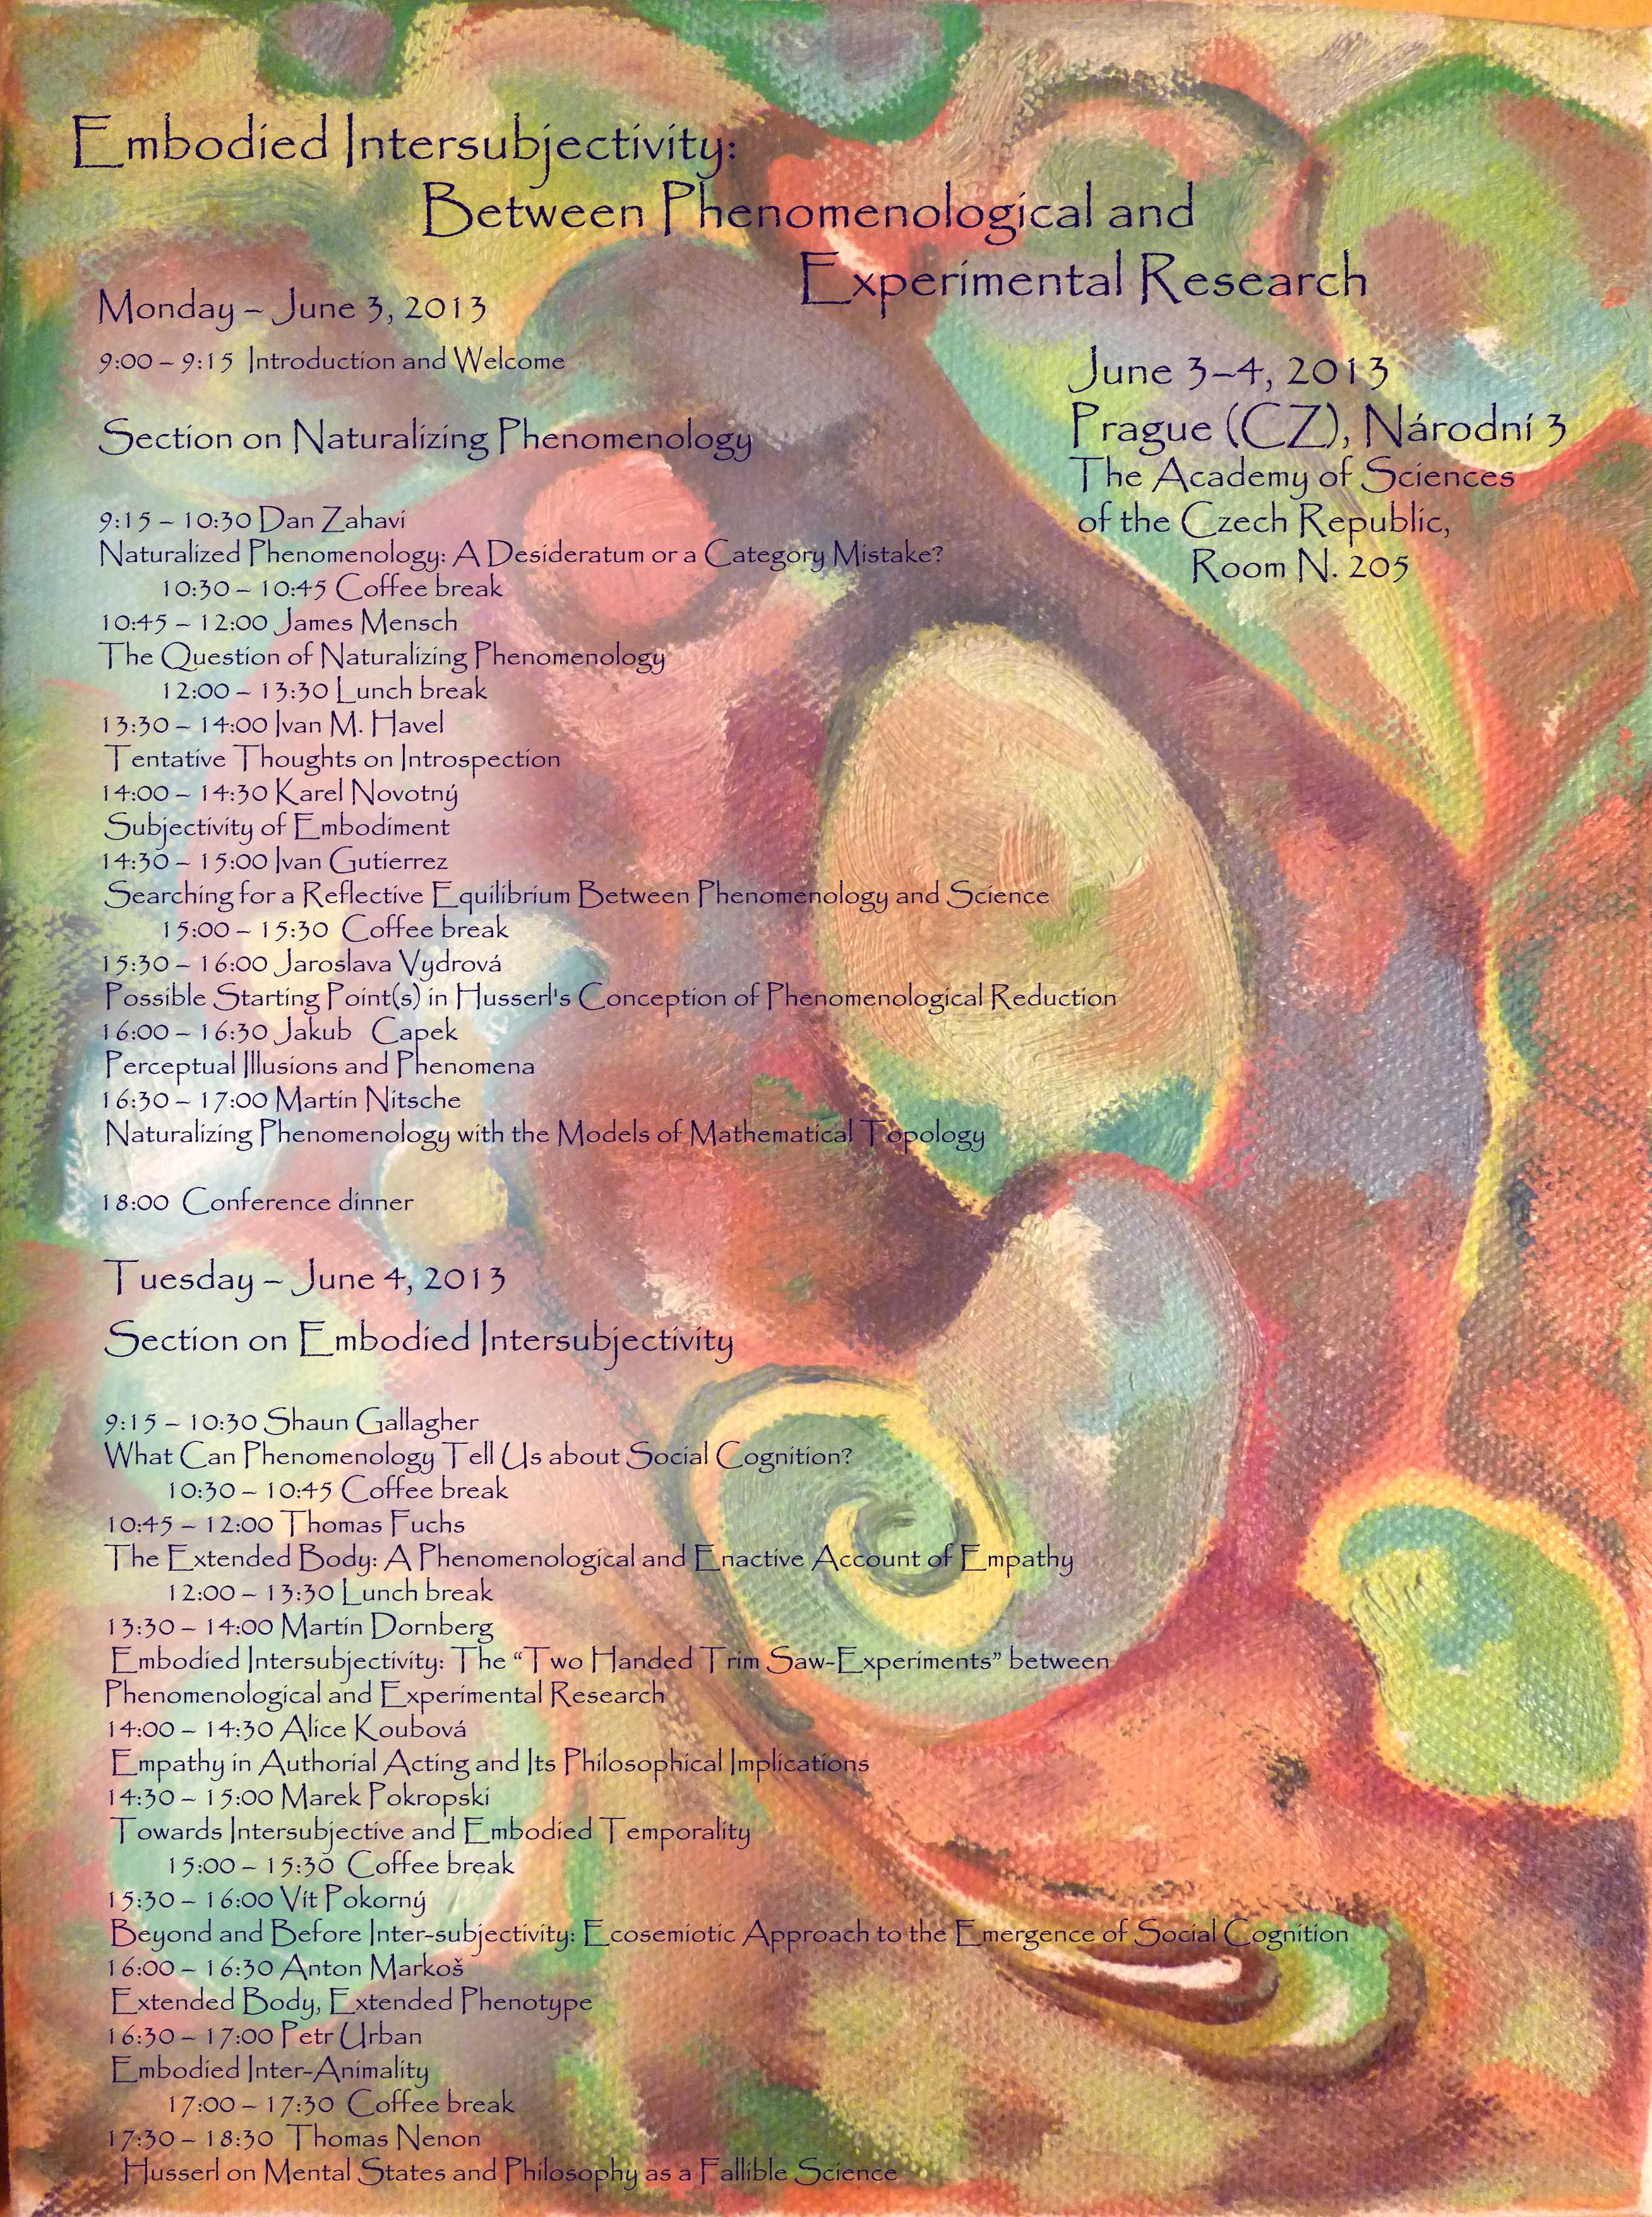 Embodied Intersubjectivity:
Between Phenomenological and
Experimental Research
June 3–4, 2013
Prague (CZ), Národní 3
The Academy of Sciences
of the Czech Republic,
Room N. 205
Monday – June 3, 2013
9:00 – 9:15 Introduction and Welcome
Section on Naturalizing Phenomenology
9:15 – 10:30 Dan Zahavi
Naturalized Phenomenology: A Desideratum or a Category Mistake?
10:30 – 10:45 Coffee break
10:45 – 12:00 James Mensch
The Question of Naturalizing Phenomenology
12:00 – 13:30 Lunch break
13:30 – 14:00 Ivan M. Havel
Tentative Thoughts on Introspection
14:00 – 14:30 Karel Novotný
Subjectivity of Embodiment
14:30 – 15:00 Ivan Gutierrez
Searching for a Reflective Equilibrium Between Phenomenology and Science
15:00 – 15:30 Coffee break
15:30 – 16:00 Jaroslava Vydrová
Possible Starting Point(s) in Husserl's Conception of Phenomenological Reduction
16:00 – 16:30 Jakub Capek
Perceptual Illusions and Phenomena
16:30 – 17:00 Martin Nitsche
Naturalizing Phenomenology with the Models of Mathematical Topology
18:00 Conference dinner
Tuesday – June 4, 2013
Section on Embodied Intersubjectivity
9:15 – 10:30 Shaun Gallagher
What Can Phenomenology Tell Us about Social Cognition?
10:30 – 10:45 Coffee break
10:45 – 12:00 Thomas Fuchs
The Extended Body: A Phenomenological and Enactive Account of Empathy
12:00 – 13:30 Lunch break
13:30 – 14:00 Martin Dornberg
Embodied Intersubjectivity: The “Two Handed Trim Saw-Experiments” between
Phenomenological and Experimental Research
14:00 – 14:30 Alice Koubová
Empathy in Authorial Acting and Its Philosophical Implications
14:30 – 15:00 Marek Pokropski
Towards Intersubjective and Embodied Temporality
15:00 – 15:30 Coffee break
15:30 – 16:00 Vít Pokorný
Beyond and Before Inter-subjectivity: Ecosemiotic Approach to the Emergence of Social Cognition
16:00 – 16:30 Anton Markoš
Extended Body, Extended Phenotype
16:30 – 17:00 Petr Urban
Embodied Inter-Animality
17:00 – 17:30 Coffee break
17:30 – 18:30 Thomas Nenon
Husserl on Mental States and Philosophy as a Fallible Science